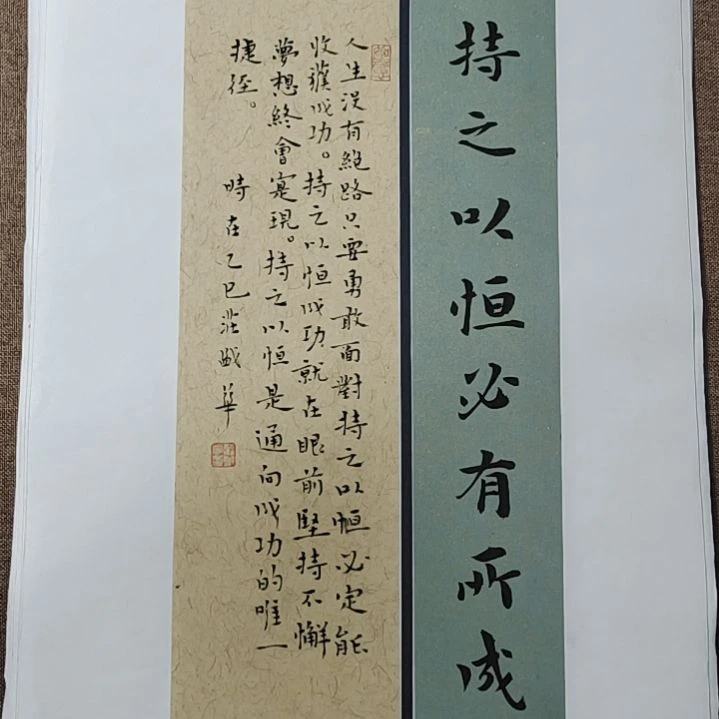 持之以恒必有所成
人生没有絕路只要勇敢面對持之以恒必定能
收獲成功。持之以恒成功就在眼前堅持不懈
夢想終會寔現。持之以恒是通向成功的唯一
捷径。
時在乙巳莊戫華